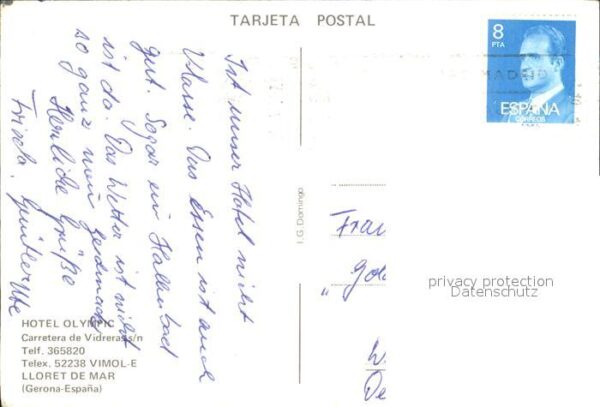 TARJETA POSTAL
Ist unser Hotel nicht
Klasse. Das Essen ist auch
gut. Sogar ein Hallenbad
ist da. Das Wetter ist nicht
so ganz
Herzliche Grüße
Frisela, Günter Ute
HOTEL OLYMPIC
Carretera de Vidreras s/n
Telf. 365820
Telex. 52238 VIMOL-E
LLORET DE MAR
(Gerona-España)
I. G. Domingo
8
PTA
MADRID
ESPAÑA
CORREOS
privacy protection
Datenschutz